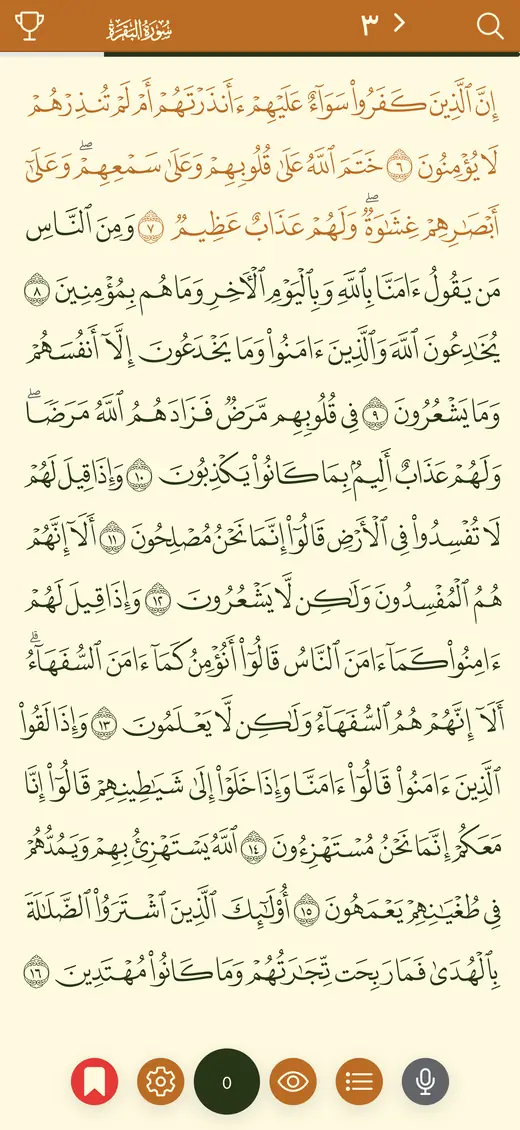 سُورَةُ البَقَرَةِ
٣
إِنَّ ٱلَّذِينَ كَفَرُوا۟ سَوَآءٌ عَلَيْهِمْ ءَأَنذَرْتَهُمْ أَمْ لَمْ تُنذِرْهُمْ
لَا يُؤْمِنُونَ ٦ خَتَمَ ٱللَّهُ عَلَىٰ قُلُوبِهِمْ وَعَلَىٰ سَمْعِهِمْ ۖ وَعَلَىٰٓ
أَبْصَـٰرِهِمْ غِشَـٰوَةٌ ۖ وَلَهُمْ عَذَابٌ عَظِيمٌ ٧ وَمِنَ ٱلنَّاسِ
مَن يَقُولُ ءَامَنَّا بِٱللَّهِ وَبِٱلْيَوْمِ ٱلْـَٔاخِرِ وَمَا هُم بِمُؤْمِنِينَ ٨
يُخَـٰدِعُونَ ٱللَّهَ وَٱلَّذِينَ ءَامَنُوا۟ وَمَا يَخْدَعُونَ إِلَّآ أَنفُسَهُمْ
وَمَا يَشْعُرُونَ ٩ فِى قُلُوبِهِم مَّرَضٌ فَزَادَهُمُ ٱللَّهُ مَرَضًا ۖ
وَلَهُمْ عَذَابٌ أَلِيمٌۢ بِمَا كَانُوا۟ يَكْذِبُونَ ١٠ وَإِذَا قِيلَ لَهُمْ
لَا تُفْسِدُوا۟ فِى ٱلْأَرْضِ قَالُوٓا۟ إِنَّمَا نَحْنُ مُصْلِحُونَ ١١ أَلَآ إِنَّهُمْ
هُمُ ٱلْمُفْسِدُونَ وَلَـٰكِن لَّا يَشْعُرُونَ ١٢ وَإِذَا قِيلَ لَهُمْ
ءَامِنُوا۟ كَمَآ ءَامَنَ ٱلنَّاسُ قَالُوٓا۟ أَنُؤْمِنُ كَمَآ ءَامَنَ ٱلسُّفَهَآءُ ۗ
أَلَآ إِنَّهُمْ هُمُ ٱلسُّفَهَآءُ وَلَـٰكِن لَّا يَعْلَمُونَ ١٣ وَإِذَا لَقُوا۟
ٱلَّذِينَ ءَامَنُوا۟ قَالُوٓا۟ ءَامَنَّا وَإِذَا خَلَوْا۟ إِلَىٰ شَيَـٰطِينِهِمْ قَالُوٓا۟ إِنَّا
مَعَكُمْ إِنَّمَا نَحْنُ مُسْتَهْزِءُونَ ١٤ ٱللَّهُ يَسْتَهْزِئُ بِهِمْ وَيَمُدُّهُمْ
فِى طُغْيَـٰنِهِمْ يَعْمَهُونَ ١٥ أُو۟لَـٰٓئِكَ ٱلَّذِينَ ٱشْتَرَوُا۟ ٱلضَّلَـٰلَةَ
بِٱلْهُدَىٰ فَمَا رَبِحَت تِّجَـٰرَتُهُمْ وَمَا كَانُوا۟ مُهْتَدِينَ ١٦
0